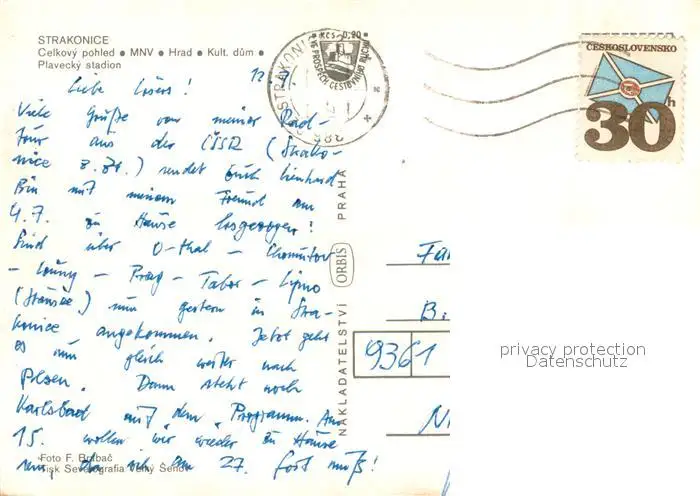 STRAKONICE
Celkový pohled ● MNV ● Hrad ● Kult. dům ●
Plavecký stadion
Liebe
Viele Grüße von meiner Rad-
tour aus der ČSSR (Strako-
nice z. Zt.) sendet Euch Lienhard
Bin mit meinem Freund am
4.7. zu Hause losgezogen!
Sind über O-thal - Chomutov
- Louny - Prag - Tabor - Lipno
(Stausee) nun gestern in Stra-
konice angekommen. Jetzt geht
es nun gleich weiter nach
Pilsen. Dann steht noch
Karlsbad auf dem Programm. Am
15. wollen wir wieder zu Hause
sein, da ich am 27. fort muß!
Foto F. Brabač
Tisk Severografia Velký Šenov
NAKLADATELSTVÍ ORBIS PRAHA
STRAKONICE
Kčs 0,90
ČESKOSLOVENSKO
30h
B.
9361
privacy protection
Datenschutz